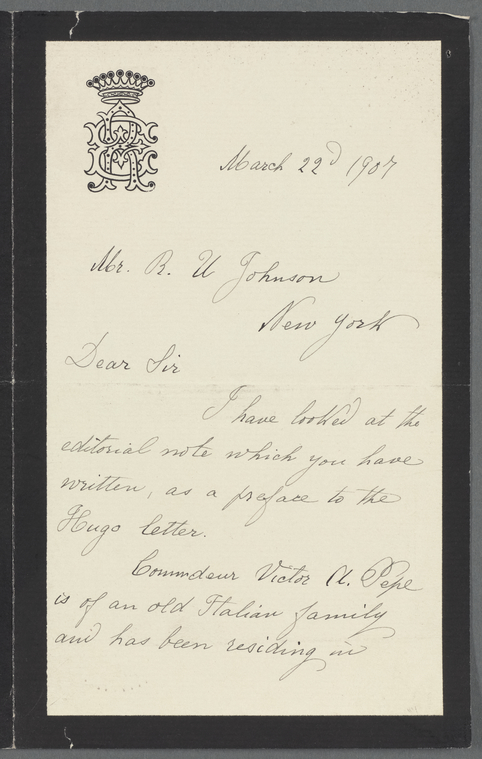 March 22d 1907
Mr. R. U Johnson
New York
Dear Sir
I have looked at the
editorial note which you have
written, as a preface to the
Hugo letter.
Commdeur Victor A. Pepe
is of an old Italian family
and has been residing in